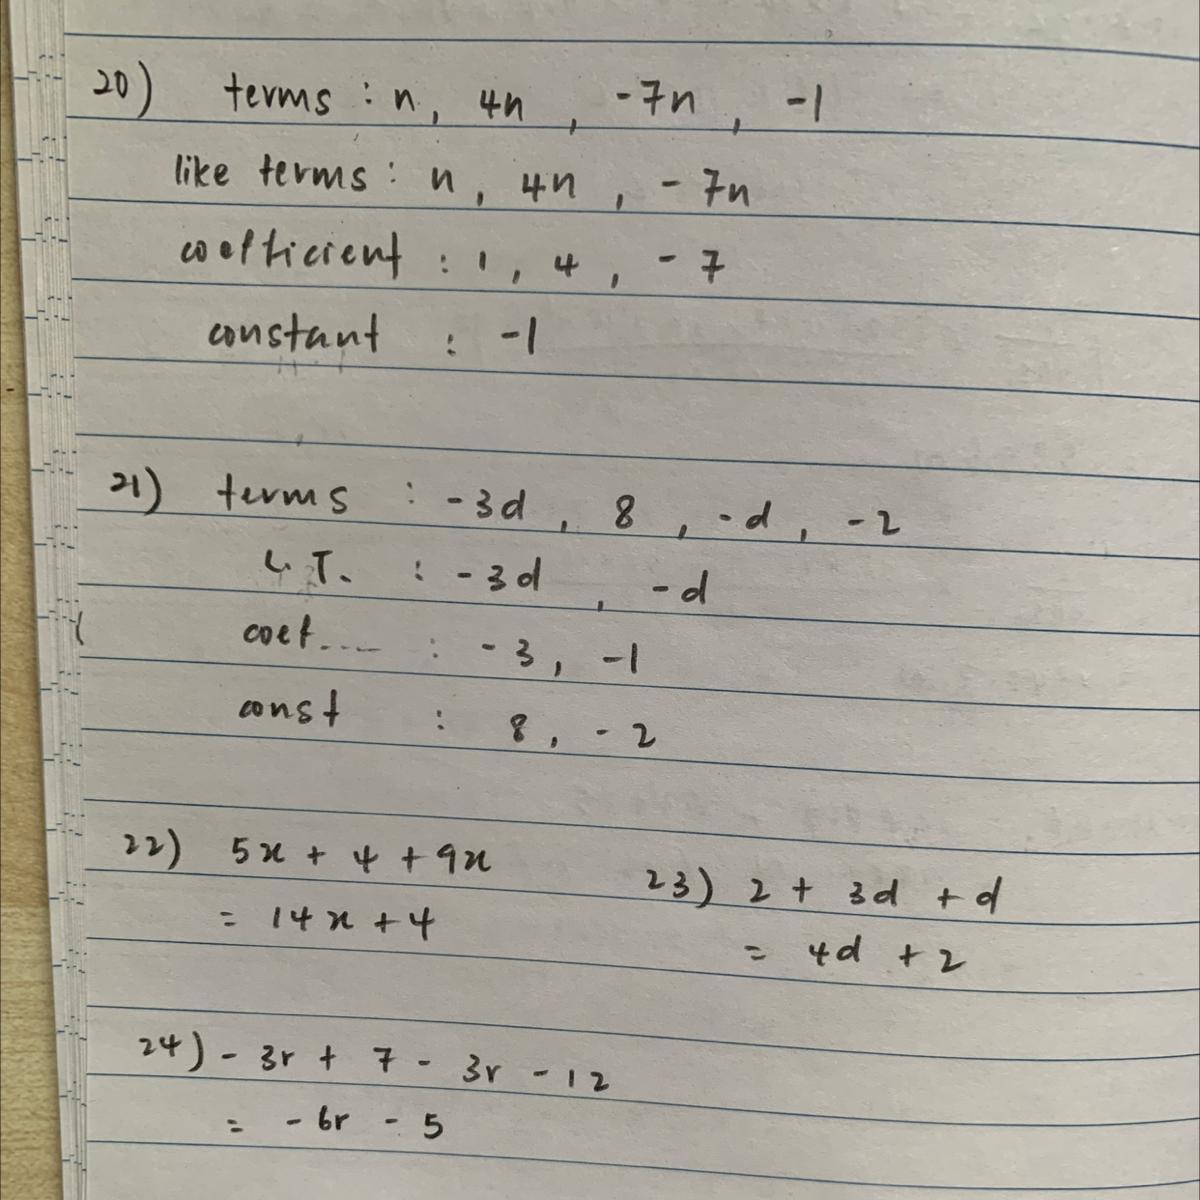 20) terms : n, 4n , -7n , -1
like terms : n , 4n , - 7n
coefficient : 1 , 4 , - 7
constant : -1
21) terms : -3d , 8 , -d , -2
L.T. : -3d , -d
coef.... : -3 , -1
const : 8 , - 2
22) 5x + 4 + 9x
= 14x + 4
23) 2 + 3d + d
= 4d + 2
24) - 3r + 7 - 3r - 12
= - 6r - 5